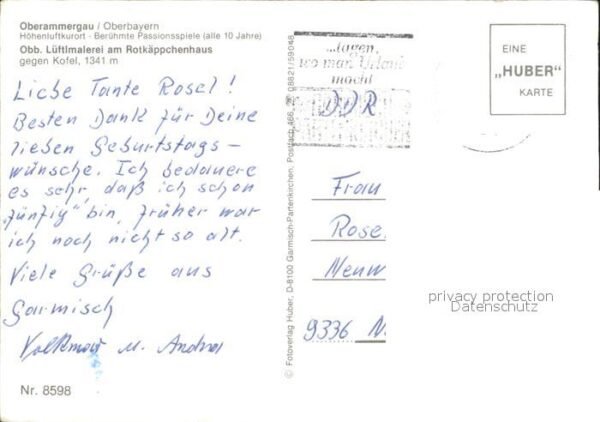 Oberammergau / Oberbayern
Höhenluftkurort - Berühmte Passionsspiele (alle 10 Jahre)
Obb. Lüftlmalerei am Rotkäppchenhaus
gegen Kofel, 1341 m
Liebe Tante Rosel!
Besten Dank für Deine
lieben Geburtstags-
wünsche. Ich bedauere
es sehr, daß ich schon
"fünfzig" bin, früher war
ich noch nicht so alt.
Viele Grüße aus
Garmisch
Volkmar u. Andrea
Nr. 8598
© Fotoverlag Huber, D-8100 Garmisch-Partenkirchen, Postfach 466, 08821/59048
...tagen,
wo man Urlaub
macht
DDR
EINE
„HUBER"
KARTE
Frau
Rose
Neuw
9336 N.
privacy protection
Datenschutz